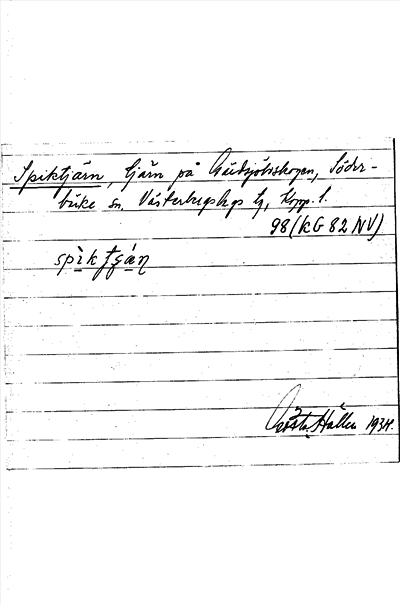 Spiktjärn, tjärn på Gäddsjöskogen, Söder-
bärke sn. Västerbergslags tg, Kopp. l.
98 (KG 82 NV)
spìkt̯ʂä́ṇ
Gösta Hållen 1934.